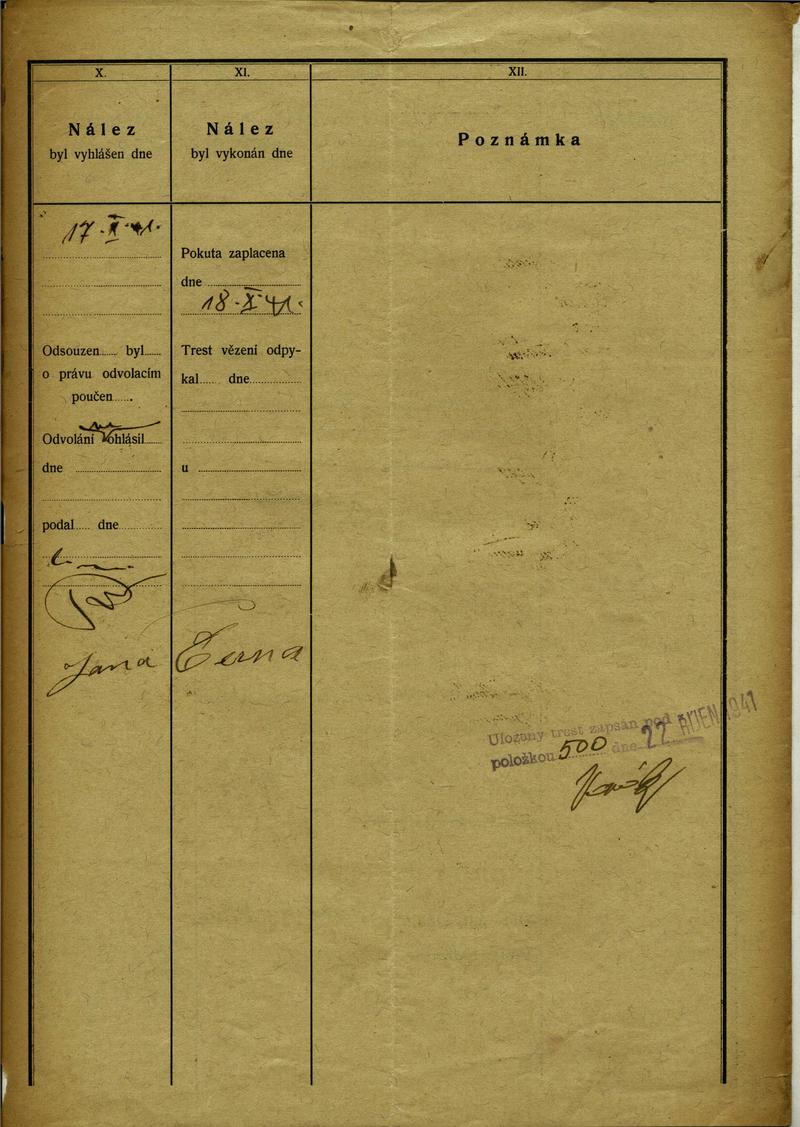 X.
Nález
byl vyhlášen dne
17.X.41.
Odsouzen...... byl......
o právu odvolacím
poučen......
Odvolání ohlásil......
dne
podal..... dne
Jana
XI.
Nález
byl vykonán dne
Pokuta zaplacena
dne
18.X.41.
Trest vězení odpy-
kal...... dne
u
XII.
Poznámka
Uložený trest zapsán pod
položkou 500 dne 22. ŘÍJEN 1941